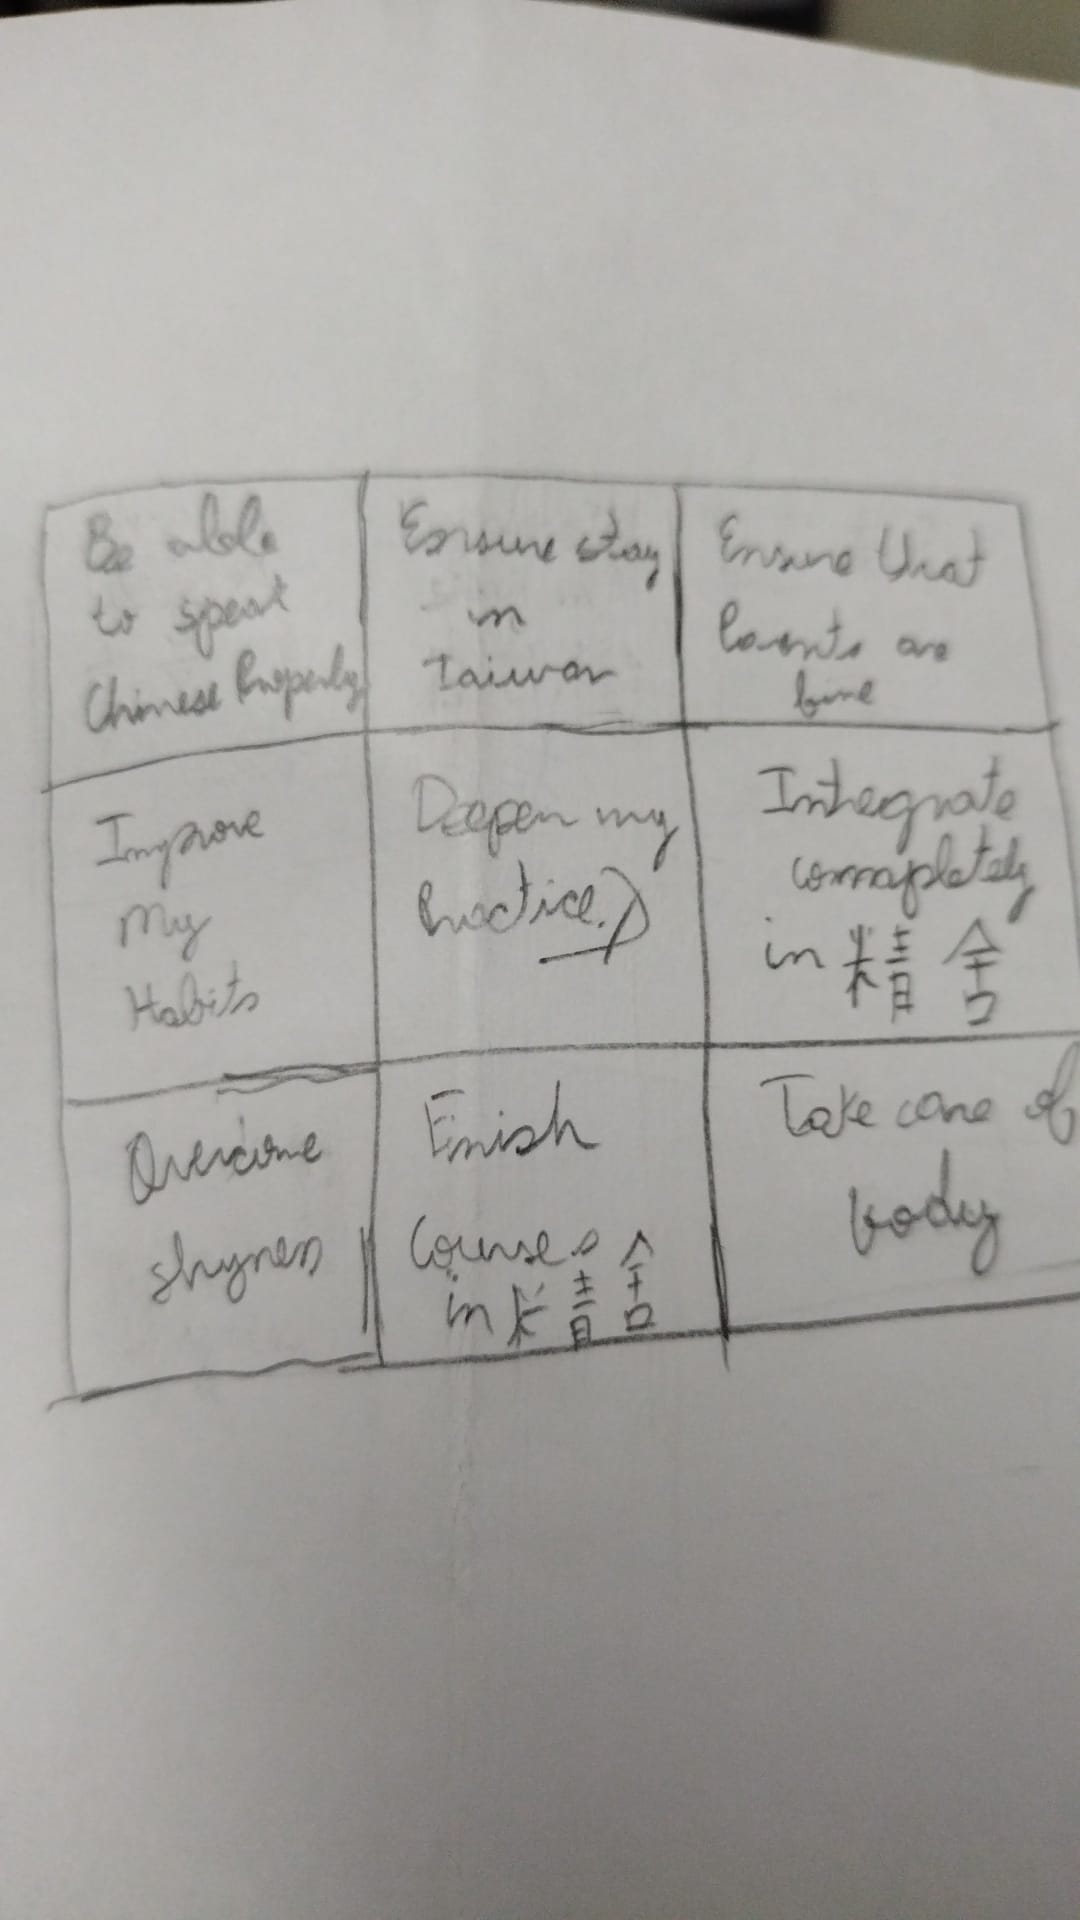 Be able
to speak
Chinese Properly
Ensure stay
in
Taiwan
Ensure that
Parents are
fine
Improve
My
Habits
Deepen my
Practice.
Integrate
commapletely
in 精舍
Overcome
shyness
Finish
Courses
in 精舍
Take care of
body